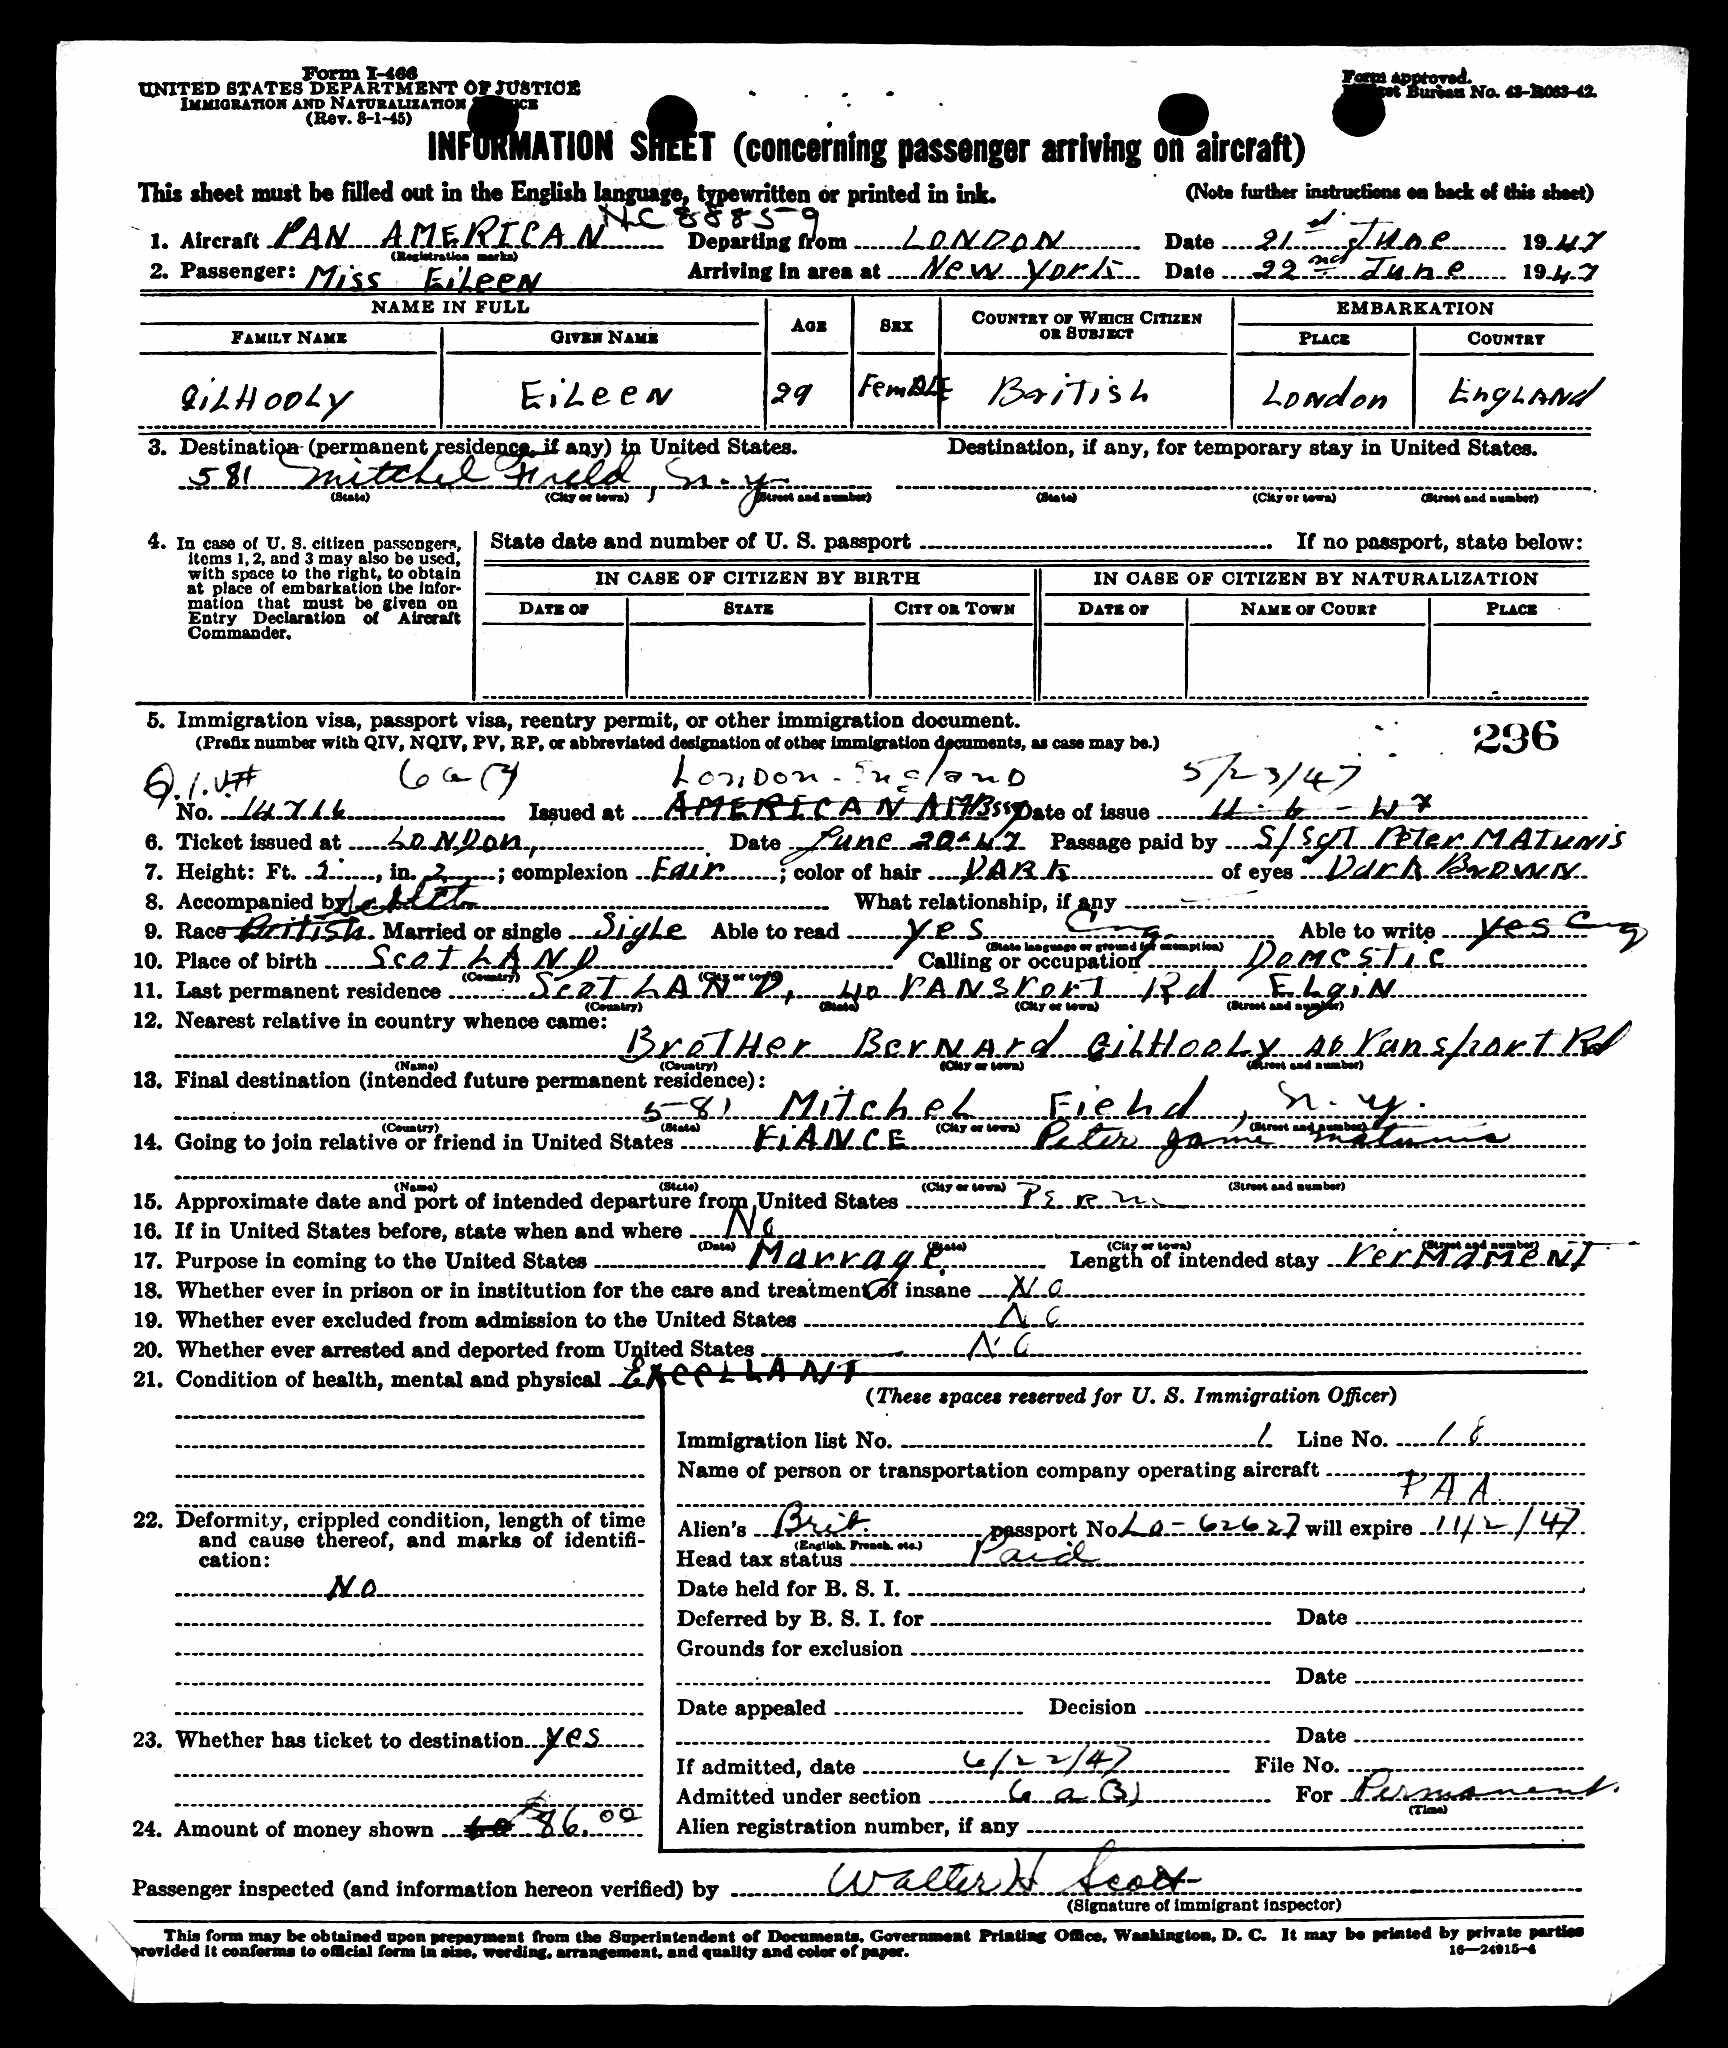 Form I-466
UNITED STATES DEPARTMENT OF JUSTICE
IMMIGRATION AND NATURALIZATION
(Rev. 8-1-45)
Form approved.
Bureau No. 43-R063-42.
INFORMATION SHEET (concerning passenger arriving on aircraft)
This sheet must be filled out in the English language, typewritten or printed in ink. (Note further instructions on back of this sheet)
NC 88859
1. Aircraft PAN AMERICAN Departing from LONDON Date 21st June 1947
(Registration marks)
2. Passenger: Miss Eileen Arriving in area at New York Date 22nd June 1947
NAME IN FULL AGE SEX COUNTRY OF WHICH CITIZEN OR SUBJECT EMBARKATION
FAMILY NAME GIVEN NAME PLACE COUNTRY
GILHOOLY EILEEN 29 FemALE British London EngLANd
3. Destination (permanent residence, if any) in United States. Destination, if any, for temporary stay in United States.
581 Mitchel Field, N.Y.
(State) (City or town) (Street and number) (State) (City or town) (Street and number)
4. In case of U. S. citizen passengers, items 1, 2, and 3 may also be used, with space to the right, to obtain at place of embarkation the information that must be given on Entry Declaration of Aircraft Commander.
State date and number of U. S. passport If no passport, state below:
IN CASE OF CITIZEN BY BIRTH IN CASE OF CITIZEN BY NATURALIZATION
DATE OF STATE CITY OR TOWN DATE OF NAME OF COURT PLACE
5. Immigration visa, passport visa, reentry permit, or other immigration document.
(Prefix number with QIV, NQIV, PV, RP, or abbreviated designation of other immigration documents, as case may be.)
236
Q.I.V.# 6a(3) London-England 5/23/47
No. 14716 Issued at AMERICAN AMBssy Date of issue 11-6-47
6. Ticket issued at LONDon, Date June 20-47 Passage paid by S/Sgt Peter MATUNIS
7. Height: Ft. 5, in. 2; complexion Fair; color of hair DARK of eyes Dark Brown
8. Accompanied by What relationship, if any
9. Race British Married or single Sigle Able to read yes Eng. Able to write yes Eng
(State language or ground for exemption)
10. Place of birth SCOTLAND Calling or occupation Domestic
(Country) (City or town)
11. Last permanent residence SCOTLAND, 40 PANSPORT Rd ELGIN
(Country) (State) (City or town) (Street and number)
12. Nearest relative in country whence came:
BroTHer BerNArd GilHooLy 40 Pansport Rd
(Name) (Country) (City or town) (Street and number)
13. Final destination (intended future permanent residence):
581 Mitchel Fiehd, N.Y.
(Country) (State) (City or town) (Street and number)
14. Going to join relative or friend in United States FIANCE Peter Jame Matunis
(Name) (State) (City or town) (Street and number)
15. Approximate date and port of intended departure from United States Perm.
16. If in United States before, state when and where No
(Date) (State) (City or town) (Street and number)
17. Purpose in coming to the United States Marrage. Length of intended stay PerMAMENT
18. Whether ever in prison or in institution for the care and treatment of insane NO
19. Whether ever excluded from admission to the United States NO
20. Whether ever arrested and deported from United States NO
21. Condition of health, mental and physical EXCELLANT
(These spaces reserved for U. S. Immigration Officer)
Immigration list No. 1 Line No. 18
Name of person or transportation company operating aircraft
PAA
22. Deformity, crippled condition, length of time and cause thereof, and marks of identification:
No
Alien's Brit. passport No. Lo-62627 will expire 11/2/47
(English, French, etc.)
Head tax status Paid
Date held for B. S. I.
Deferred by B. S. I. for Date
Grounds for exclusion
Date
Date appealed Decision
Date
23. Whether has ticket to destination yes
If admitted, date 6/22/47 File No.
Admitted under section 6a(3) For Permanent.
(Time)
24. Amount of money shown $86.00
Alien registration number, if any
Passenger inspected (and information hereon verified) by Walter H Scott
(Signature of immigrant inspector)
This form may be obtained upon prepayment from the Superintendent of Documents, Government Printing Office, Washington, D. C. It may be printed by private parties
provided it conforms to official form in size, wording, arrangement, and quality and color of paper. 16—24915-4